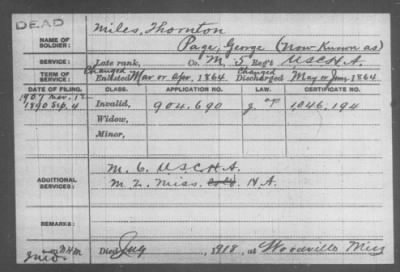 DEAD
Miles, Thornton
NAME OF SOLDIER: Page, George (now known as)
SERVICE: Late rank, Co. M 5 Reg't U S C H A.
TERM OF SERVICE: Changed Enlisted Mar or Apr, 1864 Changed Discharged May or June, 1864
DATE OF FILING. CLASS. APPLICATION NO. LAW. CERTIFICATE NO.
1907 Nov. 12
1890 Sep. 4 Invalid, 904,690 1046,194
Widow,
Minor,
ADDITIONAL SERVICES: M. 6. U S C H A.
M. 2. Miss. H A.
REMARKS:
Died July , 1918, at Woodville Miss